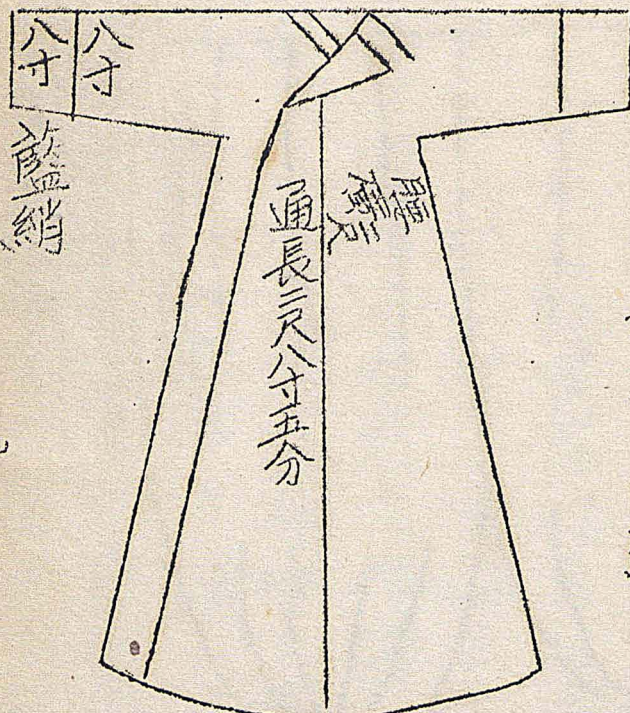 八寸
八寸
藍綃
通長二尺八寸五分
腰廣二尺